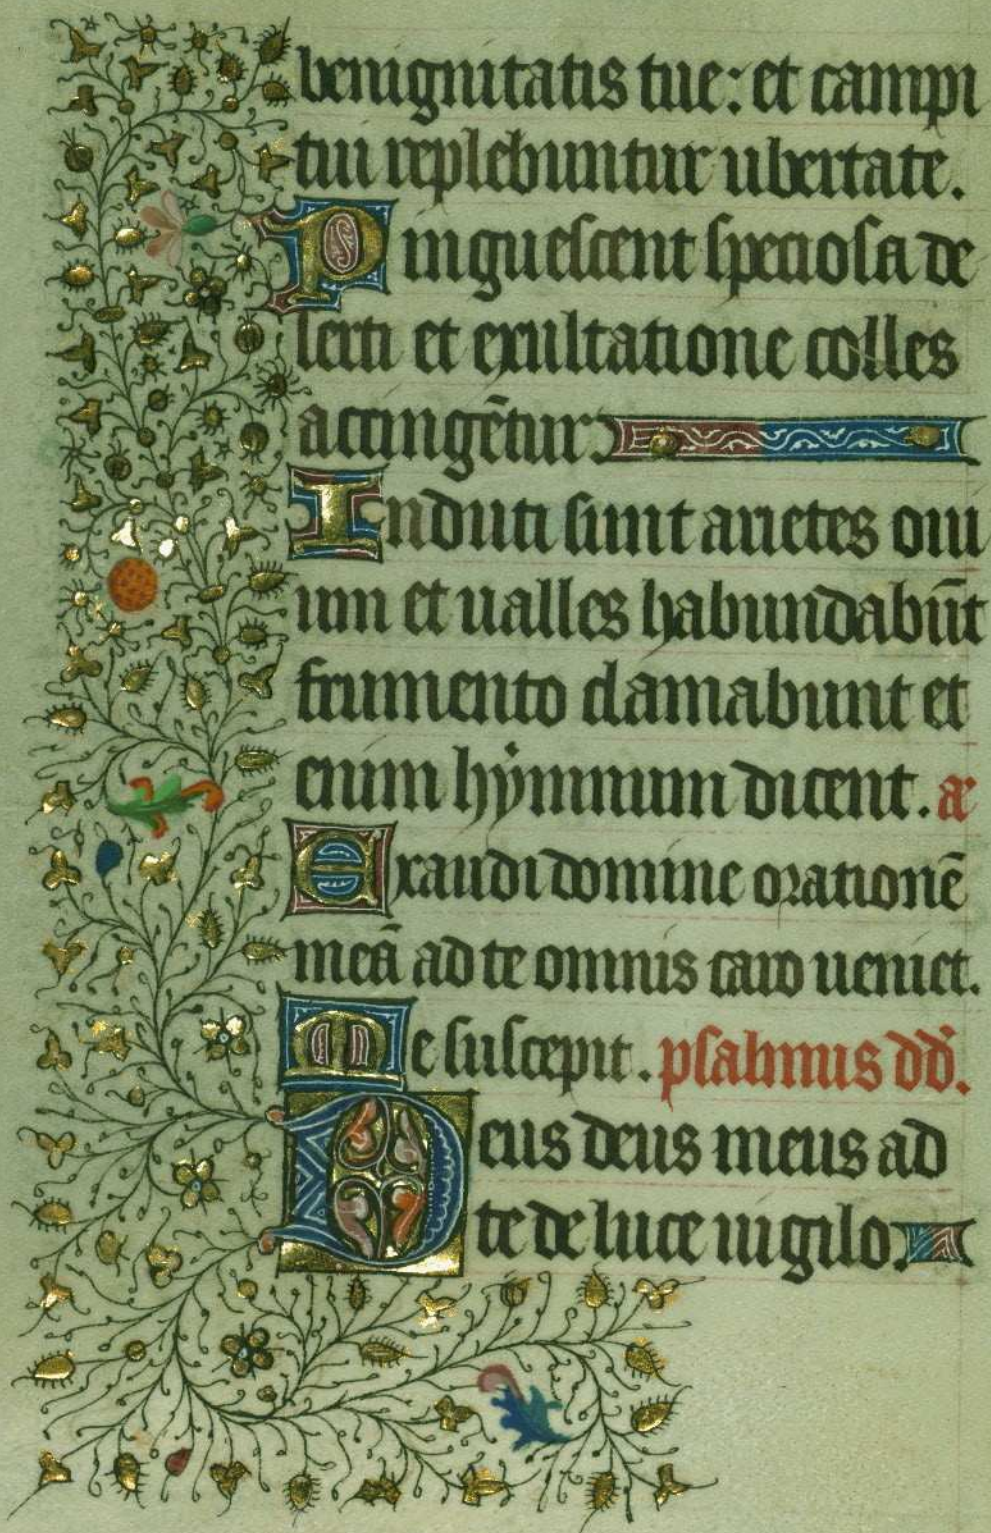 benignitatis tue: et campi
tui replebuntur ubertate.
Pinguescent speciosa de
serti et exultatione colles
accingētur
Induti sunt arietes oui
um et ualles habundabūt
frumento clamabunt et
enim hẏmnum dicent. añ
Exaudi domine orationē
meā ad te omnis caro ueniet.
Me suscepit. psalmus dd̄.
Deus deus meus ad
te de luce uigilo